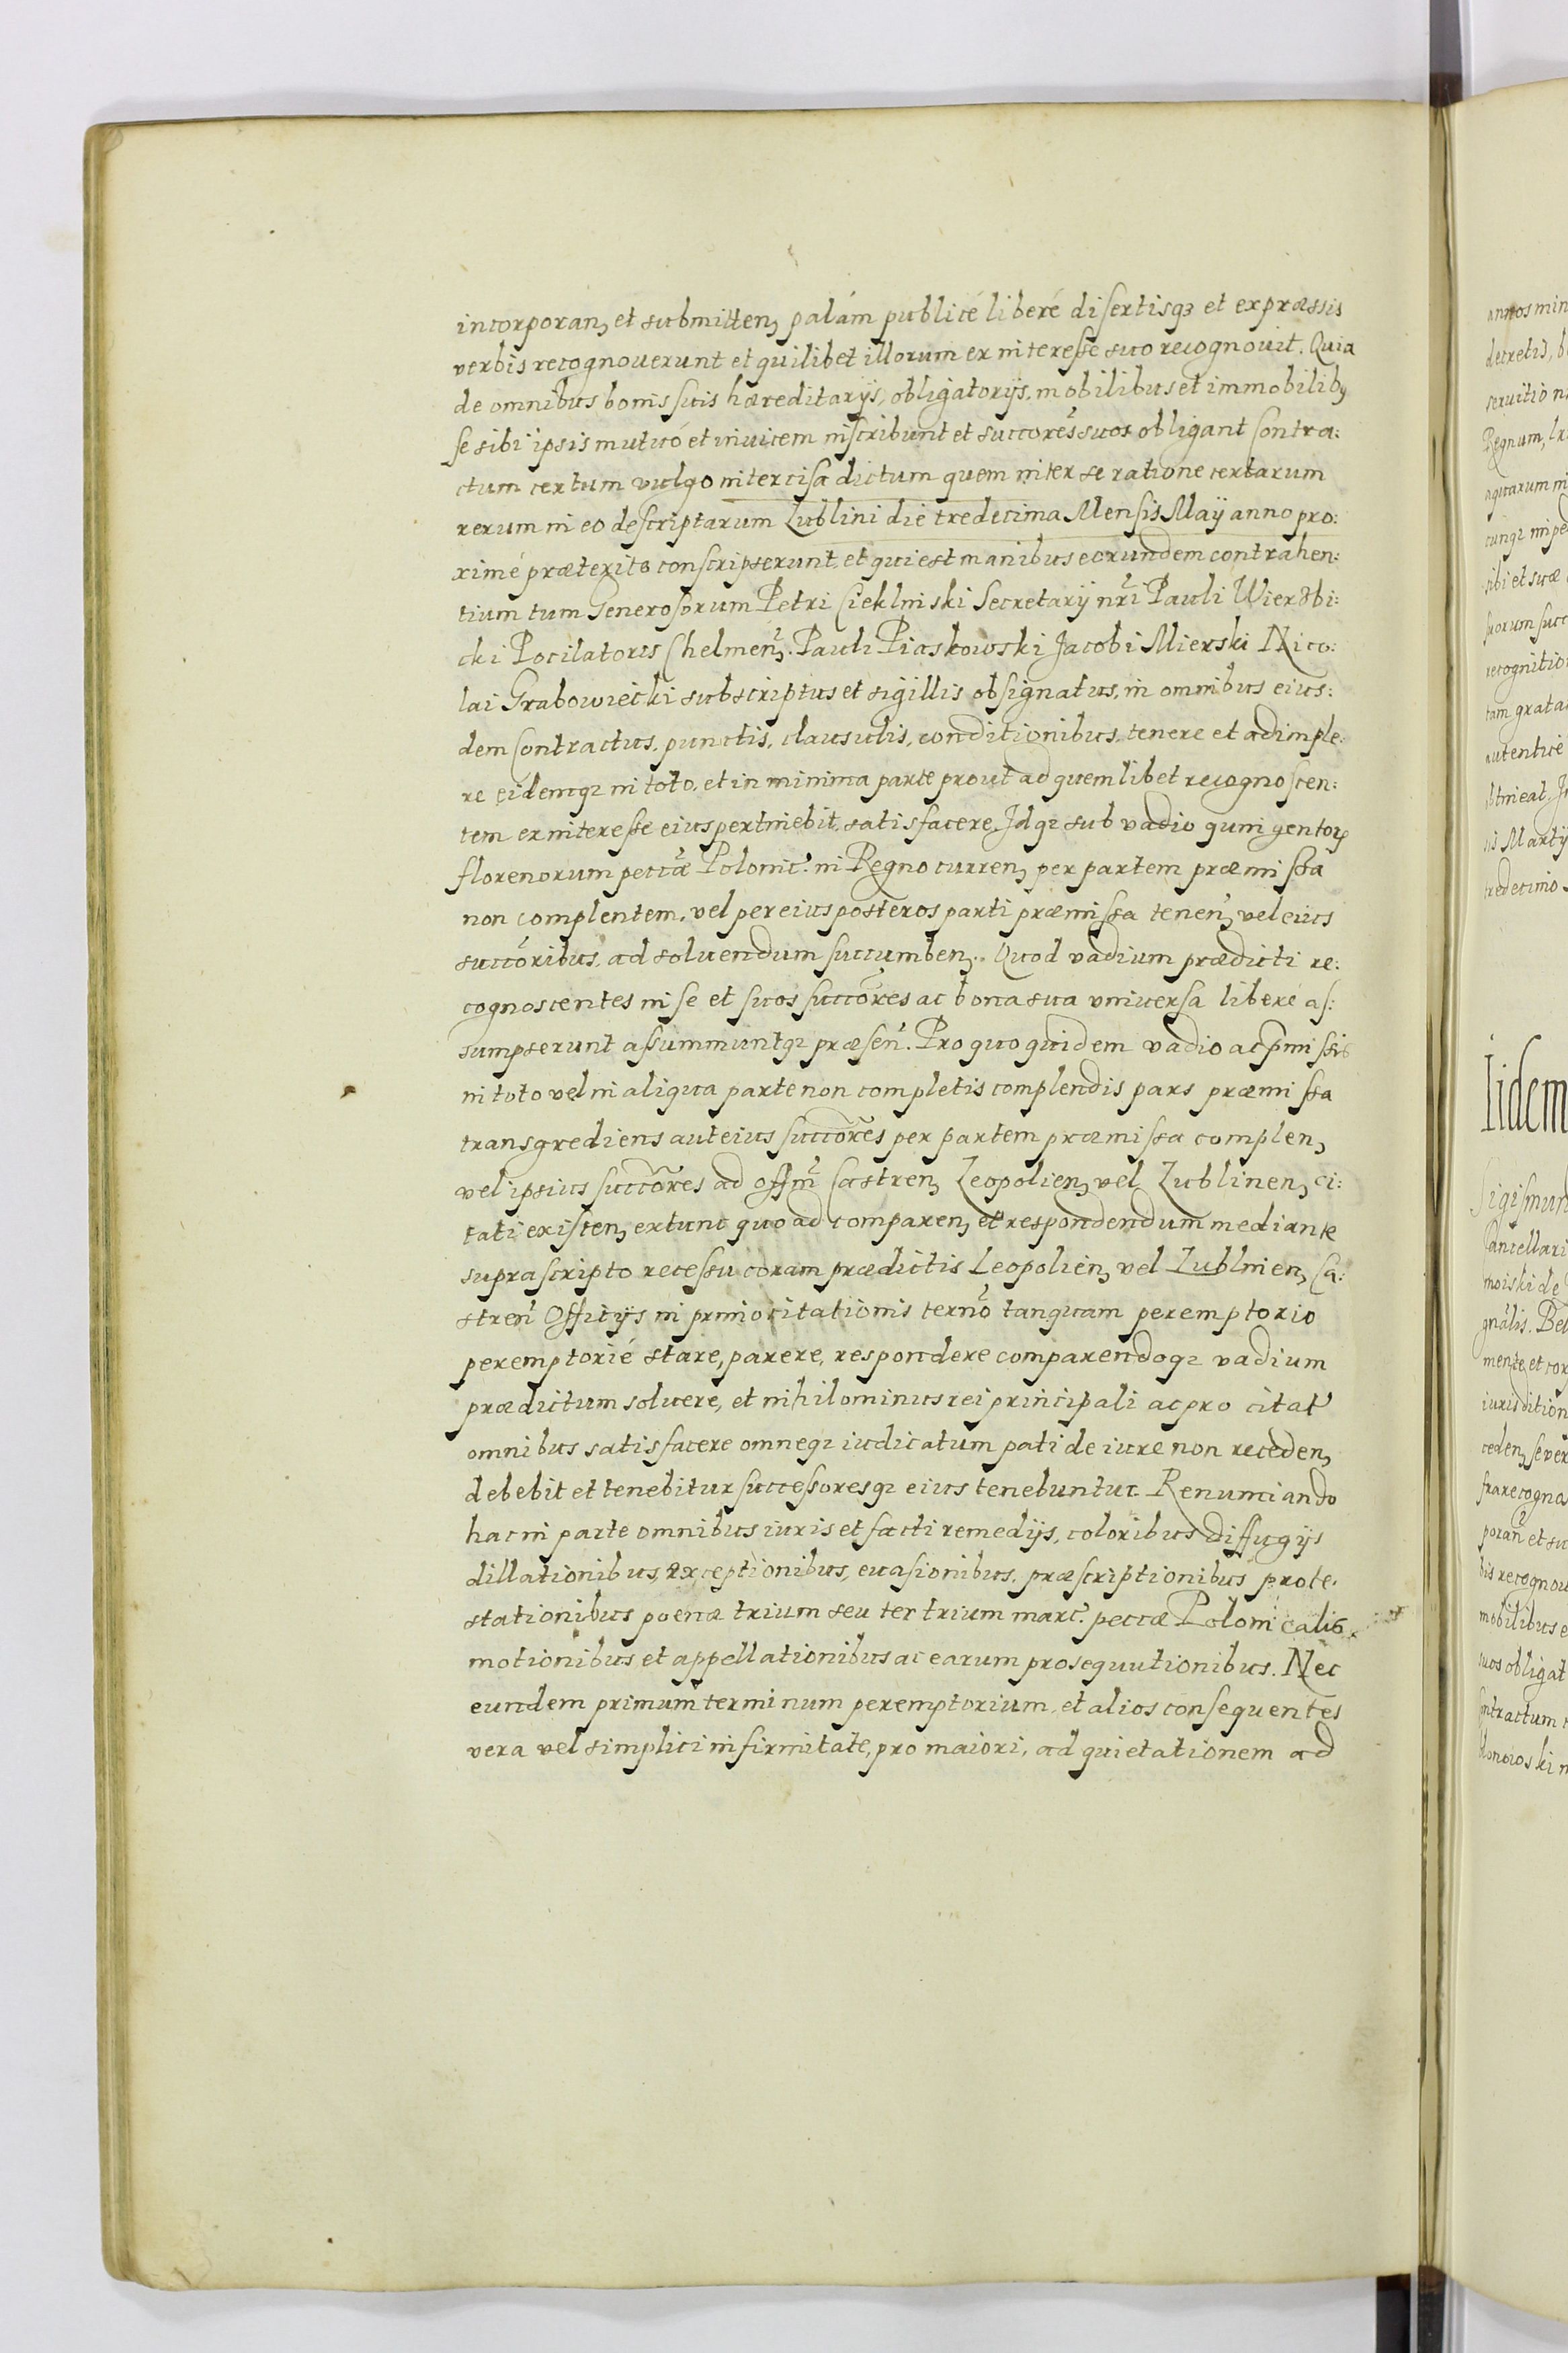 incorporan, et submitten, palám publicé liberé disertisq3 et expraessis
verbis recognoverunt et quilibet illorum ex interesse suo recognovit. Quia
de omnibus bonis suis haereditarijs, obligatorijs, mobilibus et immobilib9
se sibi ipsis mutuó et invicem inscribunt et succorẽs suos obligant Contra:
ctum certum vulgo intercisa dictum quem inter se ratione certarum
rerum in eo descriptarum Lublini die tredecima Mensis Maij anno pro:
ximé praeterito conscripserunt, et qui est manibus eorundem contrahen:
tium tum Generosorum Petri Cieklinski Secretarij nr̃i Pauli Wierzbi:
cki Pocilatoris Chelmen̄. Pauli Piaskowski Jacobi Mierski Nico:
lai Grabowiecki subscriptus et sigillis obsignatus, in omnibus eius:
dem Contractus, punctis, clausulis, conditionibus, tenere et adimple:
re eidemq3 in toto, et in minima parte prout ad quemlibet recognoscen:
tem ex interesse eius pertinebit, satisfacere. Idq3 sub vadio quingentorꝝ
florenorum peccæ̃ Polonic̃. in Regno curren, per partem praemissa
non complentem, vel per eius posteros parti praemissa tenen̄, vel eius
succõribus, ad solvendum succumben,. Quod vadium praedicti re:
cognoscentes in se et suos succõres ac bona sua vniversa liberé as:
sumpserunt assummuntq3 praesen̄. Pro quo quidem vadio ac p̄missis
in toto vel in aliqua parte non completis complendis pars praemissa
transgrediens aut eius succõres per partem praemissa complen,
vel ipsius succõres ad offm̃ Castren, Leopolien, vel Lublinen, ci:
tati existen, extunc quo ad comparen, et respondendum mediante
suprascripto recessu coram praedictis Leopolien, vel Lublinen, Ca:
stren̄ Officijs in primo citationis tern̄o tanquam peremptorio
peremptorié stare, parere, respondere comparendoq3 vadium
praedictum solvere, et nihilominus rei principali ac pro citat̃
omnibus satisfacere omneq3 iudicatum pati de iure non receden,
debebit et tenebitur successoresq3 eius tenebuntur. Renunciando
hac in parte omnibus iuris et facti remedijs, coloribus diffugijs
dillationibus, exceptionibus, evasionibus, praescriptionibus prote.
stationibus poenae trium seu ter trium marc̃. peccae Polonicalis
motionibus et appellationibus ac earum prosequutionibus. Nec
eundem primum terminum peremptorium, et alios consequentes
vera vel simplici infirmitate, pro maiori, ad quietationem ad
annos min
decretis, b
servitio n
Regnum,
aquarum in
cunq3 impe
sibi et suae
suorum succ
recognitio
tam grata
autentice
obtineat. I
is Martij
tredecimo
Iidem
Sigismun
Cancellari
moiski de
gnãlis. Bel
mente, et cor
iurisdition
ceden, se ver
fra recogno
poran̄ et su
bis recognov
mobilibus e
suos obligat
ontractum